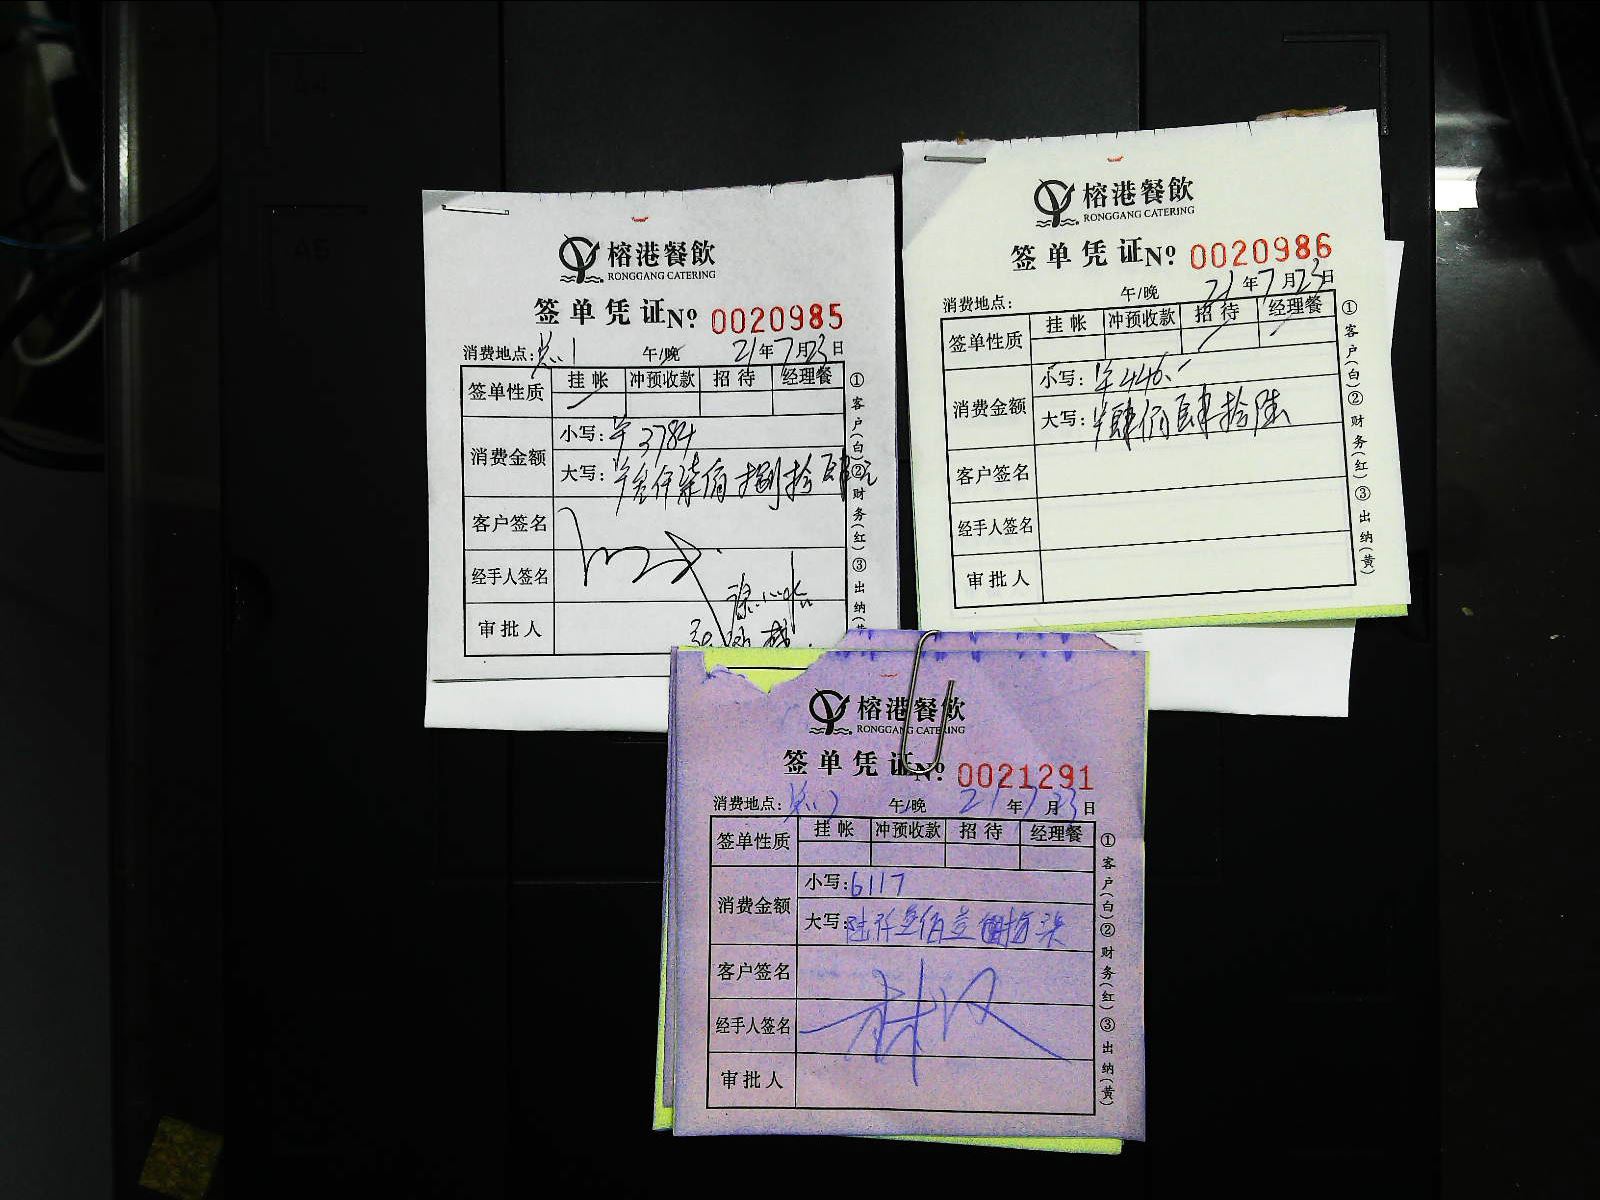 榕港餐飲
RONGGANG CATERING
签单凭证№ 0020985
消费地点: 午/晚 21年7月23日
签单性质 挂帐 冲预收款 招待 经理餐
消费金额 小写: ¥3784
大写: ¥叁仟柒佰捌拾肆元
客户签名
经手人签名
审批人
①客户(白)②财务(红)③出纳(黄
榕港餐飲
RONGGANG CATERING
签单凭证№ 0020986
消费地点: 午/晚 21年7月23日
签单性质 挂帐 冲预收款 招待 经理餐
消费金额 小写: ¥446.-
大写: ¥肆佰肆拾陆
客户签名
经手人签名
审批人
①客户(白)②财务(红)③出纳(黄)
榕港餐飲
RONGGANG CATERING
签单凭证№ 0021291
消费地点: 午/晚 21年7月23日
签单性质 挂帐 冲预收款 招待 经理餐
消费金额 小写: 6117
大写: 陆仟壹佰壹拾柒
客户签名
经手人签名
审批人
①客户(白)②财务(红)③出纳(黄)
A5